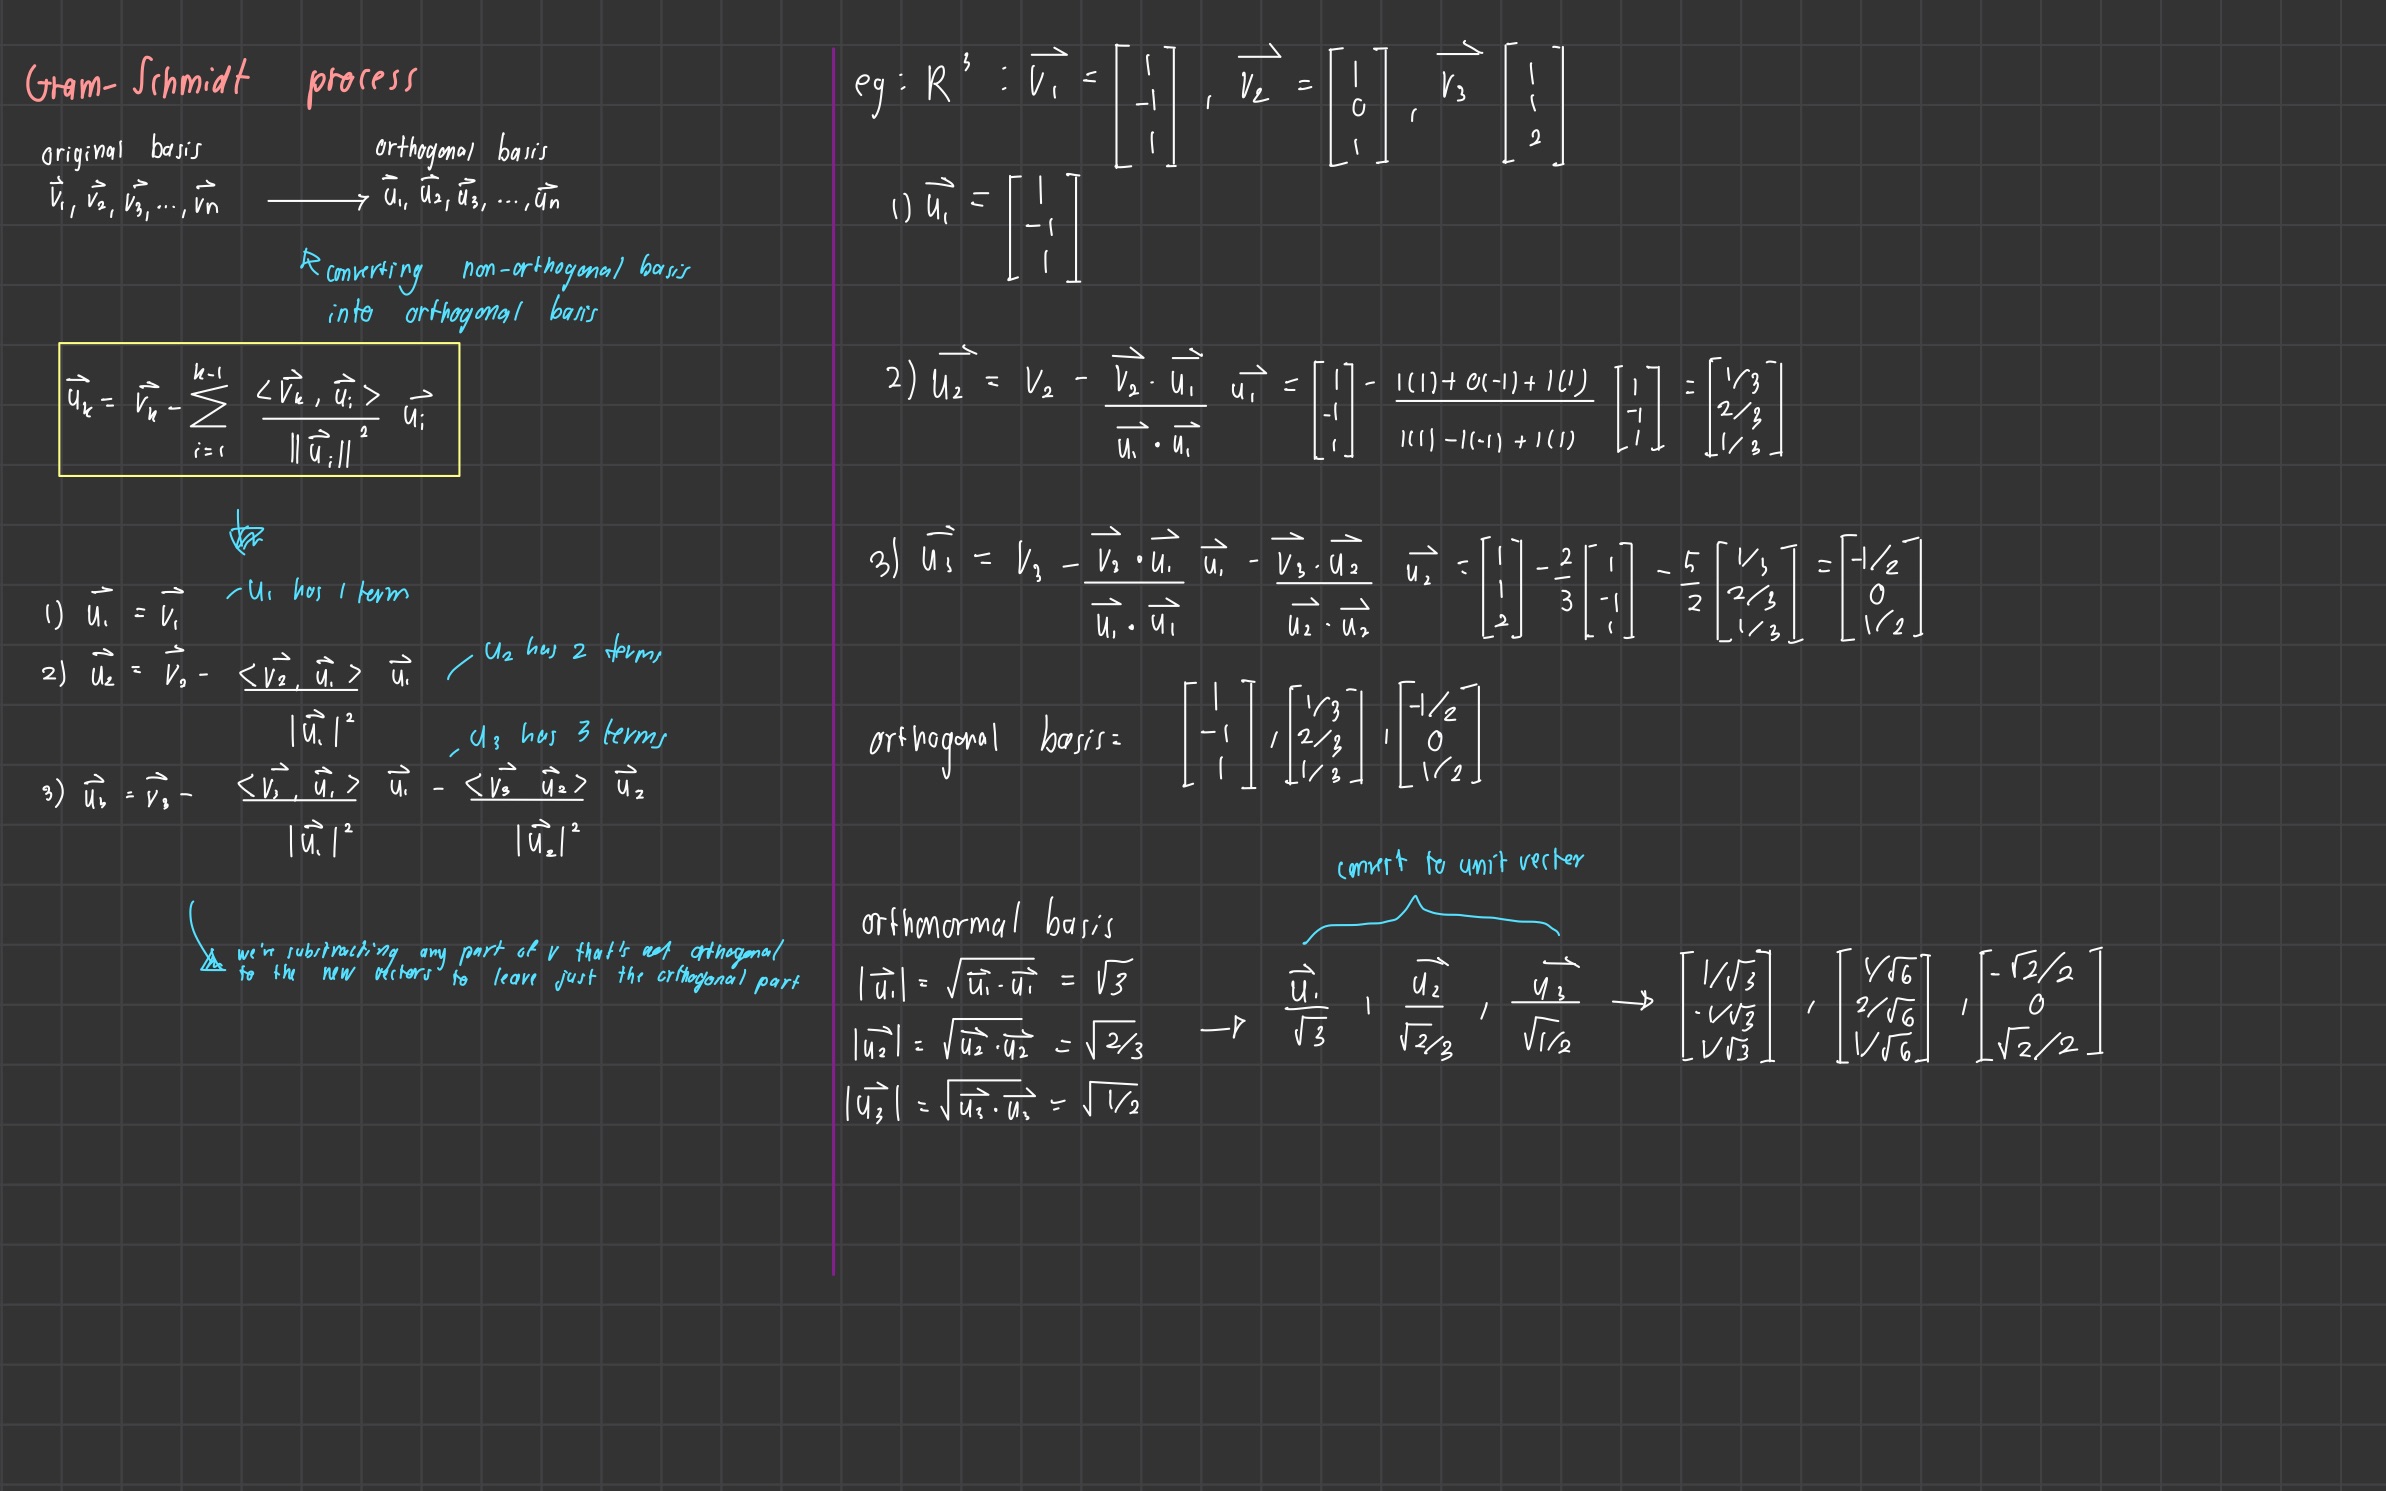 Gram-Schmidt process
original basis → orthogonal basis
v⃗₁, v⃗₂, v⃗₃, ..., v⃗n → u⃗₁, u⃗₂, u⃗₃, ..., u⃗n
converting non-orthogonal basis
into orthogonal basis
u⃗k = v⃗k - ∑_{i=1}^{k-1} <v⃗k, u⃗i> / ||u⃗i||² u⃗i
u₁ has 1 term
1) u⃗₁ = v⃗₁
u₂ has 2 terms
2) u⃗₂ = v⃗₂ - <v⃗₂, u⃗₁> / |u⃗₁|² u⃗₁
u₃ has 3 terms
3) u⃗₃ = v⃗₃ - <v⃗₃, u⃗₁> / |u⃗₁|² u⃗₁ - <v⃗₃ u⃗₂> / |u⃗₂|² u⃗₂
we're substracting any part of v that's not orthogonal
to the new vectors to leave just the orthogonal part
eg: R³ : v⃗₁ = [1 -1 1], v⃗₂ = [1 0 1], v⃗₃ [1 1 2]
1) u⃗₁ = [1 -1 1]
2) u⃗₂ = v₂ - v⃗₂·u⃗₁ / u⃗₁·u⃗₁ u⃗₁ = [1 -1 1] - 1(1)+0(-1)+1(1) / 1(1)-1(-1)+1(1) [1 -1 1] = [1/3 2/3 1/3]
3) u⃗₃ = v₃ - v⃗₃·u⃗₁ / u⃗₁·u⃗₁ u⃗₁ - v⃗₃·u⃗₂ / u⃗₂·u⃗₂ u⃗₂ = [1 1 2] - 2/3 [1 -1 1] - 5/2 [1/3 2/3 1/3] = [-1/2 0 1/2]
orthogonal basis = [1 -1 1], [1/3 2/3 1/3], [-1/2 0 1/2]
convert to unit vector
orthonormal basis
|u⃗₁| = √(u⃗₁·u⃗₁) = √3
|u⃗₂| = √(u⃗₂·u⃗₂) = √(2/3)
|u⃗₃| = √(u⃗₃·u⃗₃) = √(1/2)
→ u⃗₁/√3, u⃗₂/√2/3, u⃗₃/√1/2 → [1/√3 -1/√3 1/√3], [1/√6 2/√6 1/√6], [-√2/2 0 √2/2]